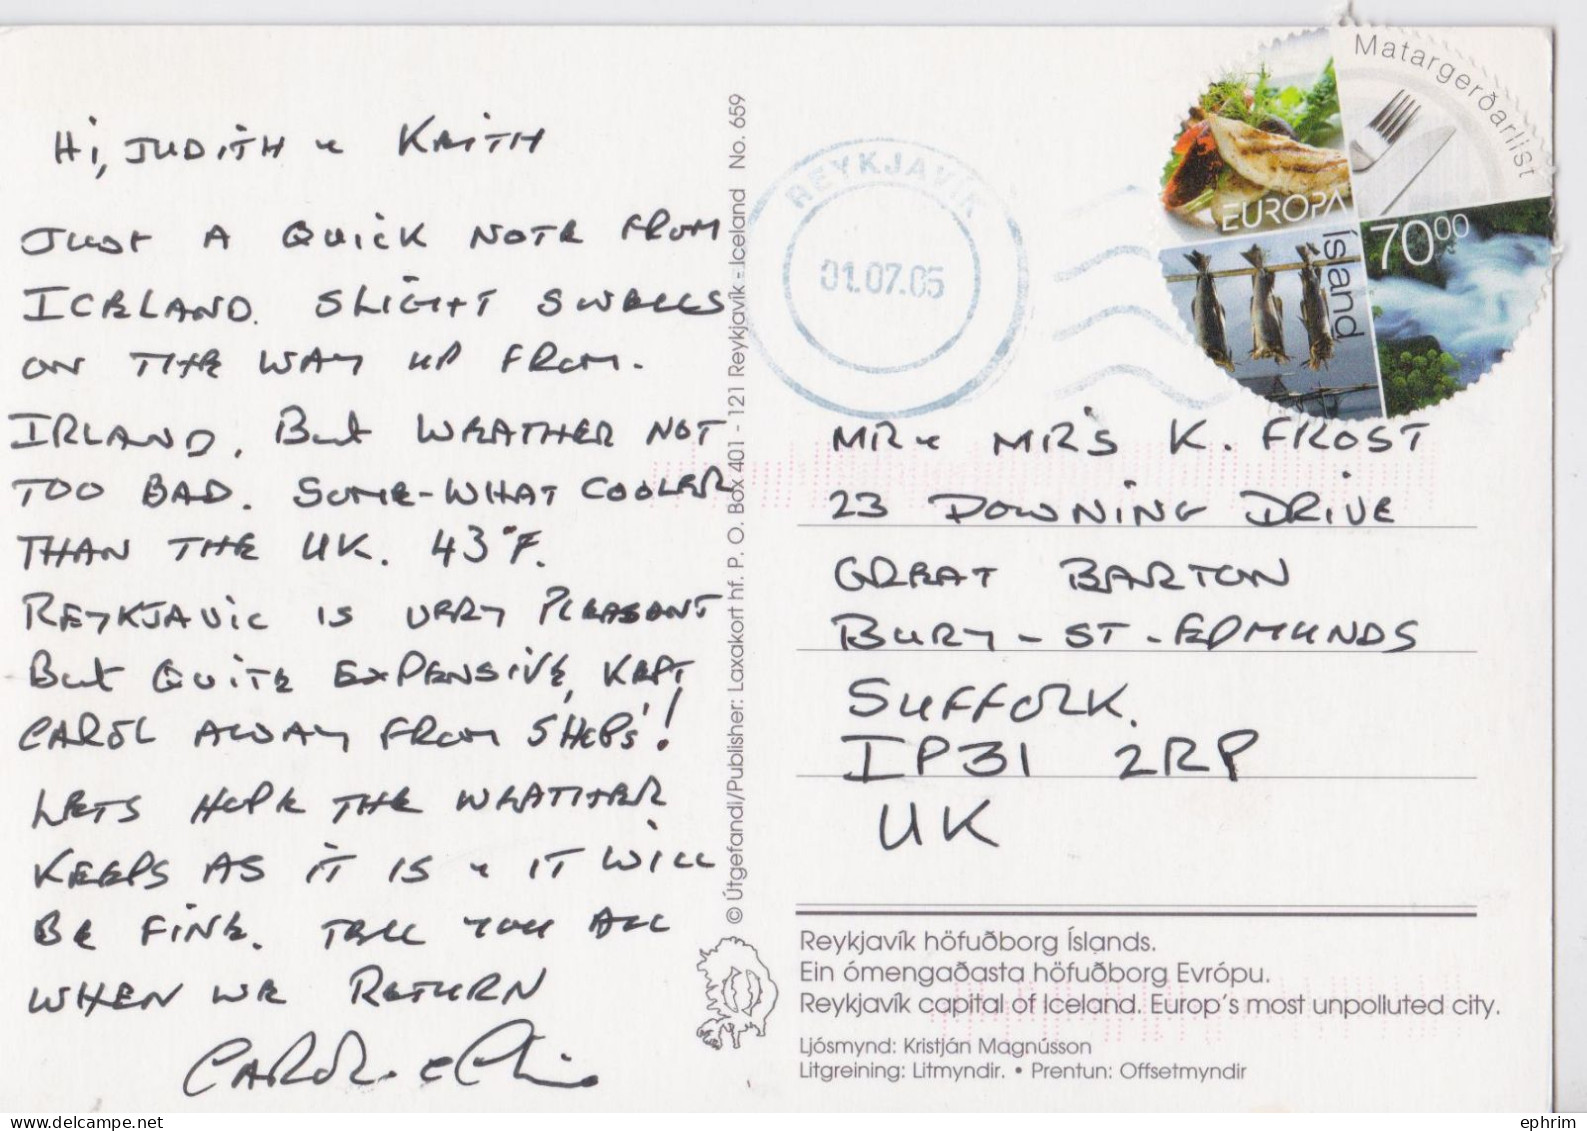 Hi, JUDITH & KEITH
JUST A QUICK NOTE FROM
ICELAND. SLIGHT SWELLS
ON THE WAY UP FROM.
IRLAND, But WEATHER NOT
TOO BAD. SOME-WHAT COOLER
THAN THE UK. 43°F.
REYKJAVIC IS VERY PLEASANT
But QUITE EXPENSIVE, KEPT
CAROL AWAY FROM SHOPS'!
LETS HOPE THE WEATHER
KEEPS AS IT IS & IT WILL
BE FINE. TELL YOU ALL
WHEN WE RETURN
CAROL &
© Útgefandi/Publisher: Laxakort hf. P. O. Box 401 - 121 Reykjavík - Iceland No. 659
REYKJAVÍK
01.07.05
Matargerðarlist
EUROPA
Ísland
70⁰⁰
MR & MR'S K. FROST
23 DOWNING DRIVE
GREAT BARTON
BURY - ST - EDMUNDS
SUFFOLK.
IP31 2RP
UK
Reykjavík höfuðborg Íslands.
Ein ómengaðasta höfuðborg Evrópu.
Reykjavík capital of Iceland. Europ's most unpolluted city.
Ljósmynd: Kristján Magnússon
Litgreining: Litmyndir. • Prentun: Offsetmyndir
ephrim